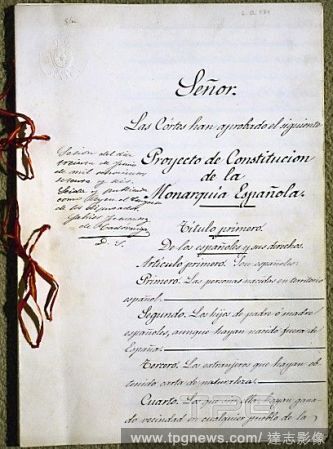 Señor:
Las Córtes han aprobado el siguiente
Proyecto de Constitucion
de la
Monarquía Española.
Título primero.
De los españoles y sus derechos.
Artículo primero. Son españoles:
Primero. Las personas nacidas en territorio
español.
Segundo. Los hijos de padre ó madre
españoles, aunque hayan nacido fuera de
España.
Tercero. Los extranjeros que hayan ob-
tenido carta de naturaleza.
Cuarto. Los que sin ella hayan gana-
do vecindad en cualquier pueblo de la
Sesion del dia
de mil ochocientos
setenta y seis
como Ley en el
www.tpgnews.com/ 達志影像